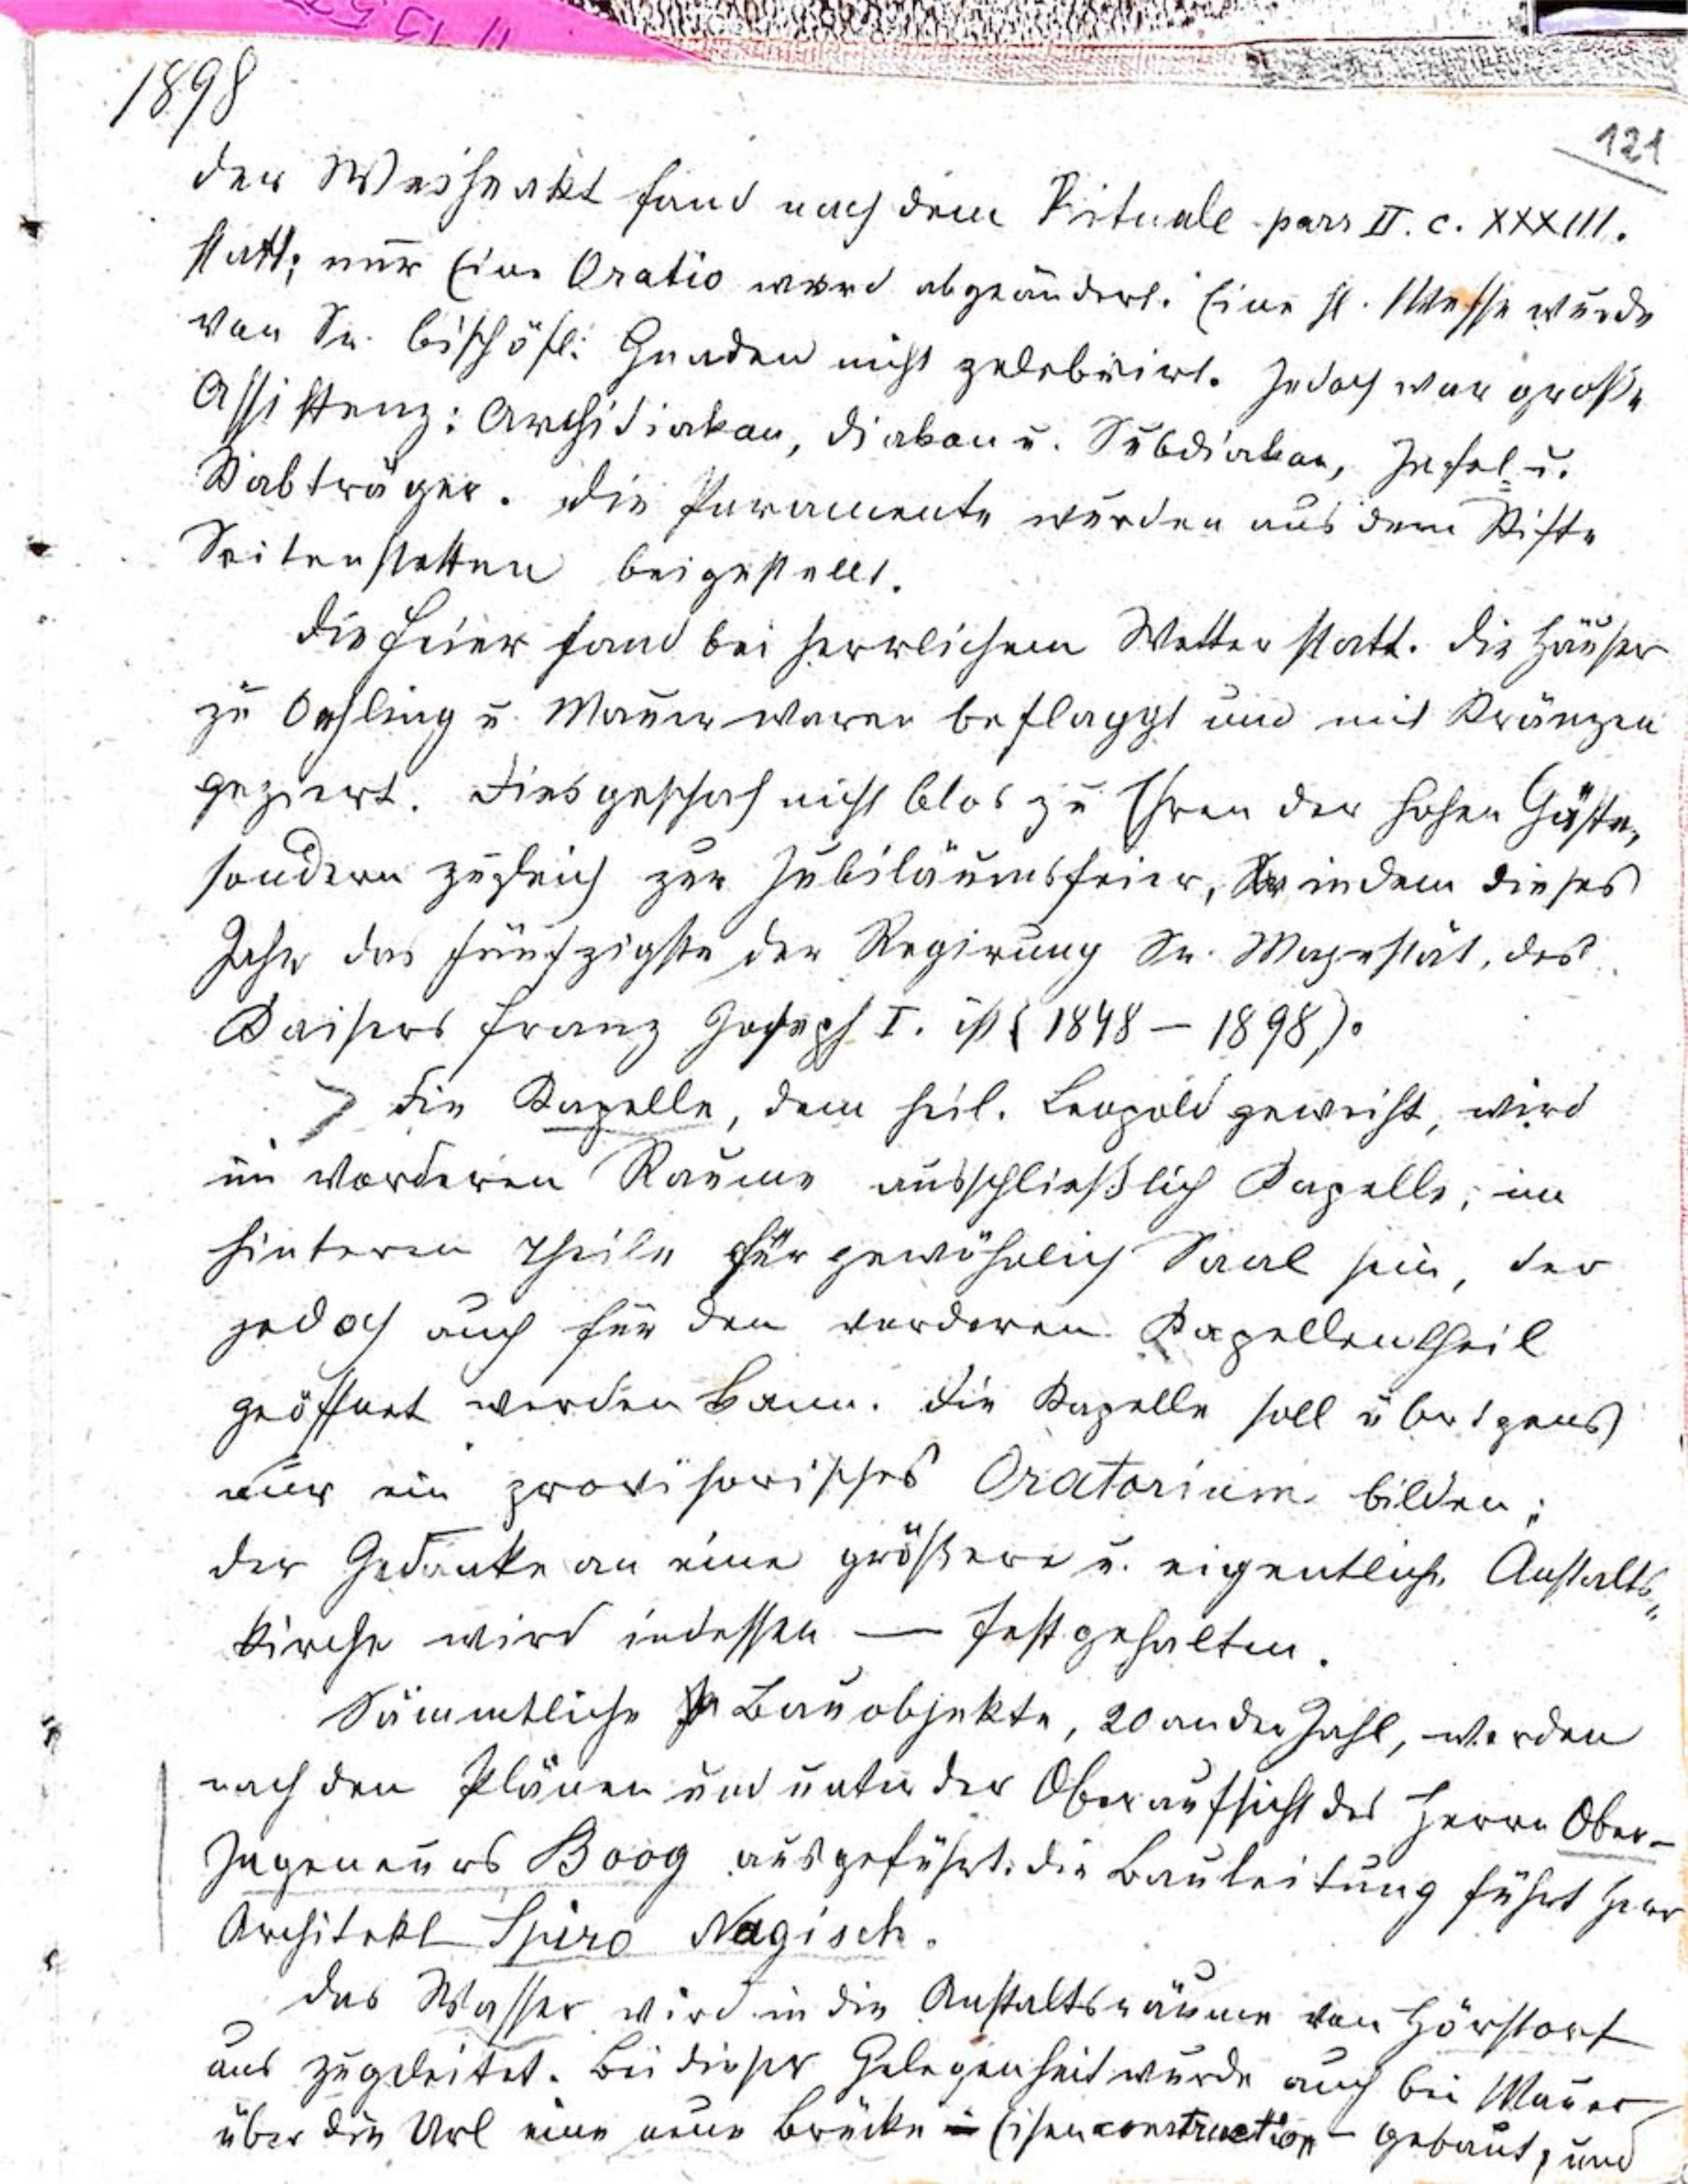 1898
121
Der Weiheakt fand nach dem Rituale pars II. c. XXXIII.
statt; nur Eine Oratio ward abgeändert. Eine hl. Messe wurde
von Sr. bischöfl. Gnaden nicht zelebrirt. Jedoch war große
Assistenz: Archidiakon, Diakon u. Subdiakon, Inful- u.
Stabträger. Die Paramente wurden aus dem Stifte
Seitenstetten beigestellt.
Die Feier fand bei herrlichem Wetter statt. Die Häuser
zu Oehling u. Mauer waren beflaggt und mit Kränzen
geziert. Dies geschah nicht blos zu Ehren der hohen Gäste,
sondern zugleich zur Jubiläumsfeier, indem dieses
Jahr das fünfzigste der Regirung Sr. Majestät, des
Kaisers Franz Joseph I. ist (1848 – 1898).
Die Kapelle, dem heil. Leopold geweiht, wird
im vorderen Raume ausschließlich Kapelle, im
hinteren Theile für gewöhnlich Saal sein, der
jedoch auch für den vorderen Kapellentheil
geöffnet werden kann. Die Kapelle soll übrigens
nur ein provisorisches Oratorium bilden;
der Gedanke an eine größere u. eigentliche Anstalts-
kirche wird indessen — festgehalten.
Sämmtliche Bauobjekte, 20 an der Zahl, werden
nach den Plänen und unter der Oberaufsicht des Herrn Ober-
Ingeneurs Boog ausgeführt; die Bauleitung führt Herr
Architekt Spiro Nagisch.
Das Wasser wird in die Anstaltsräume von Hörstorf
aus zugeleitet. Bei dieser Gelegenheit wurde auch bei Mauer
über die Url eine neue Brücke – Eisenconstruction – gebaut, und